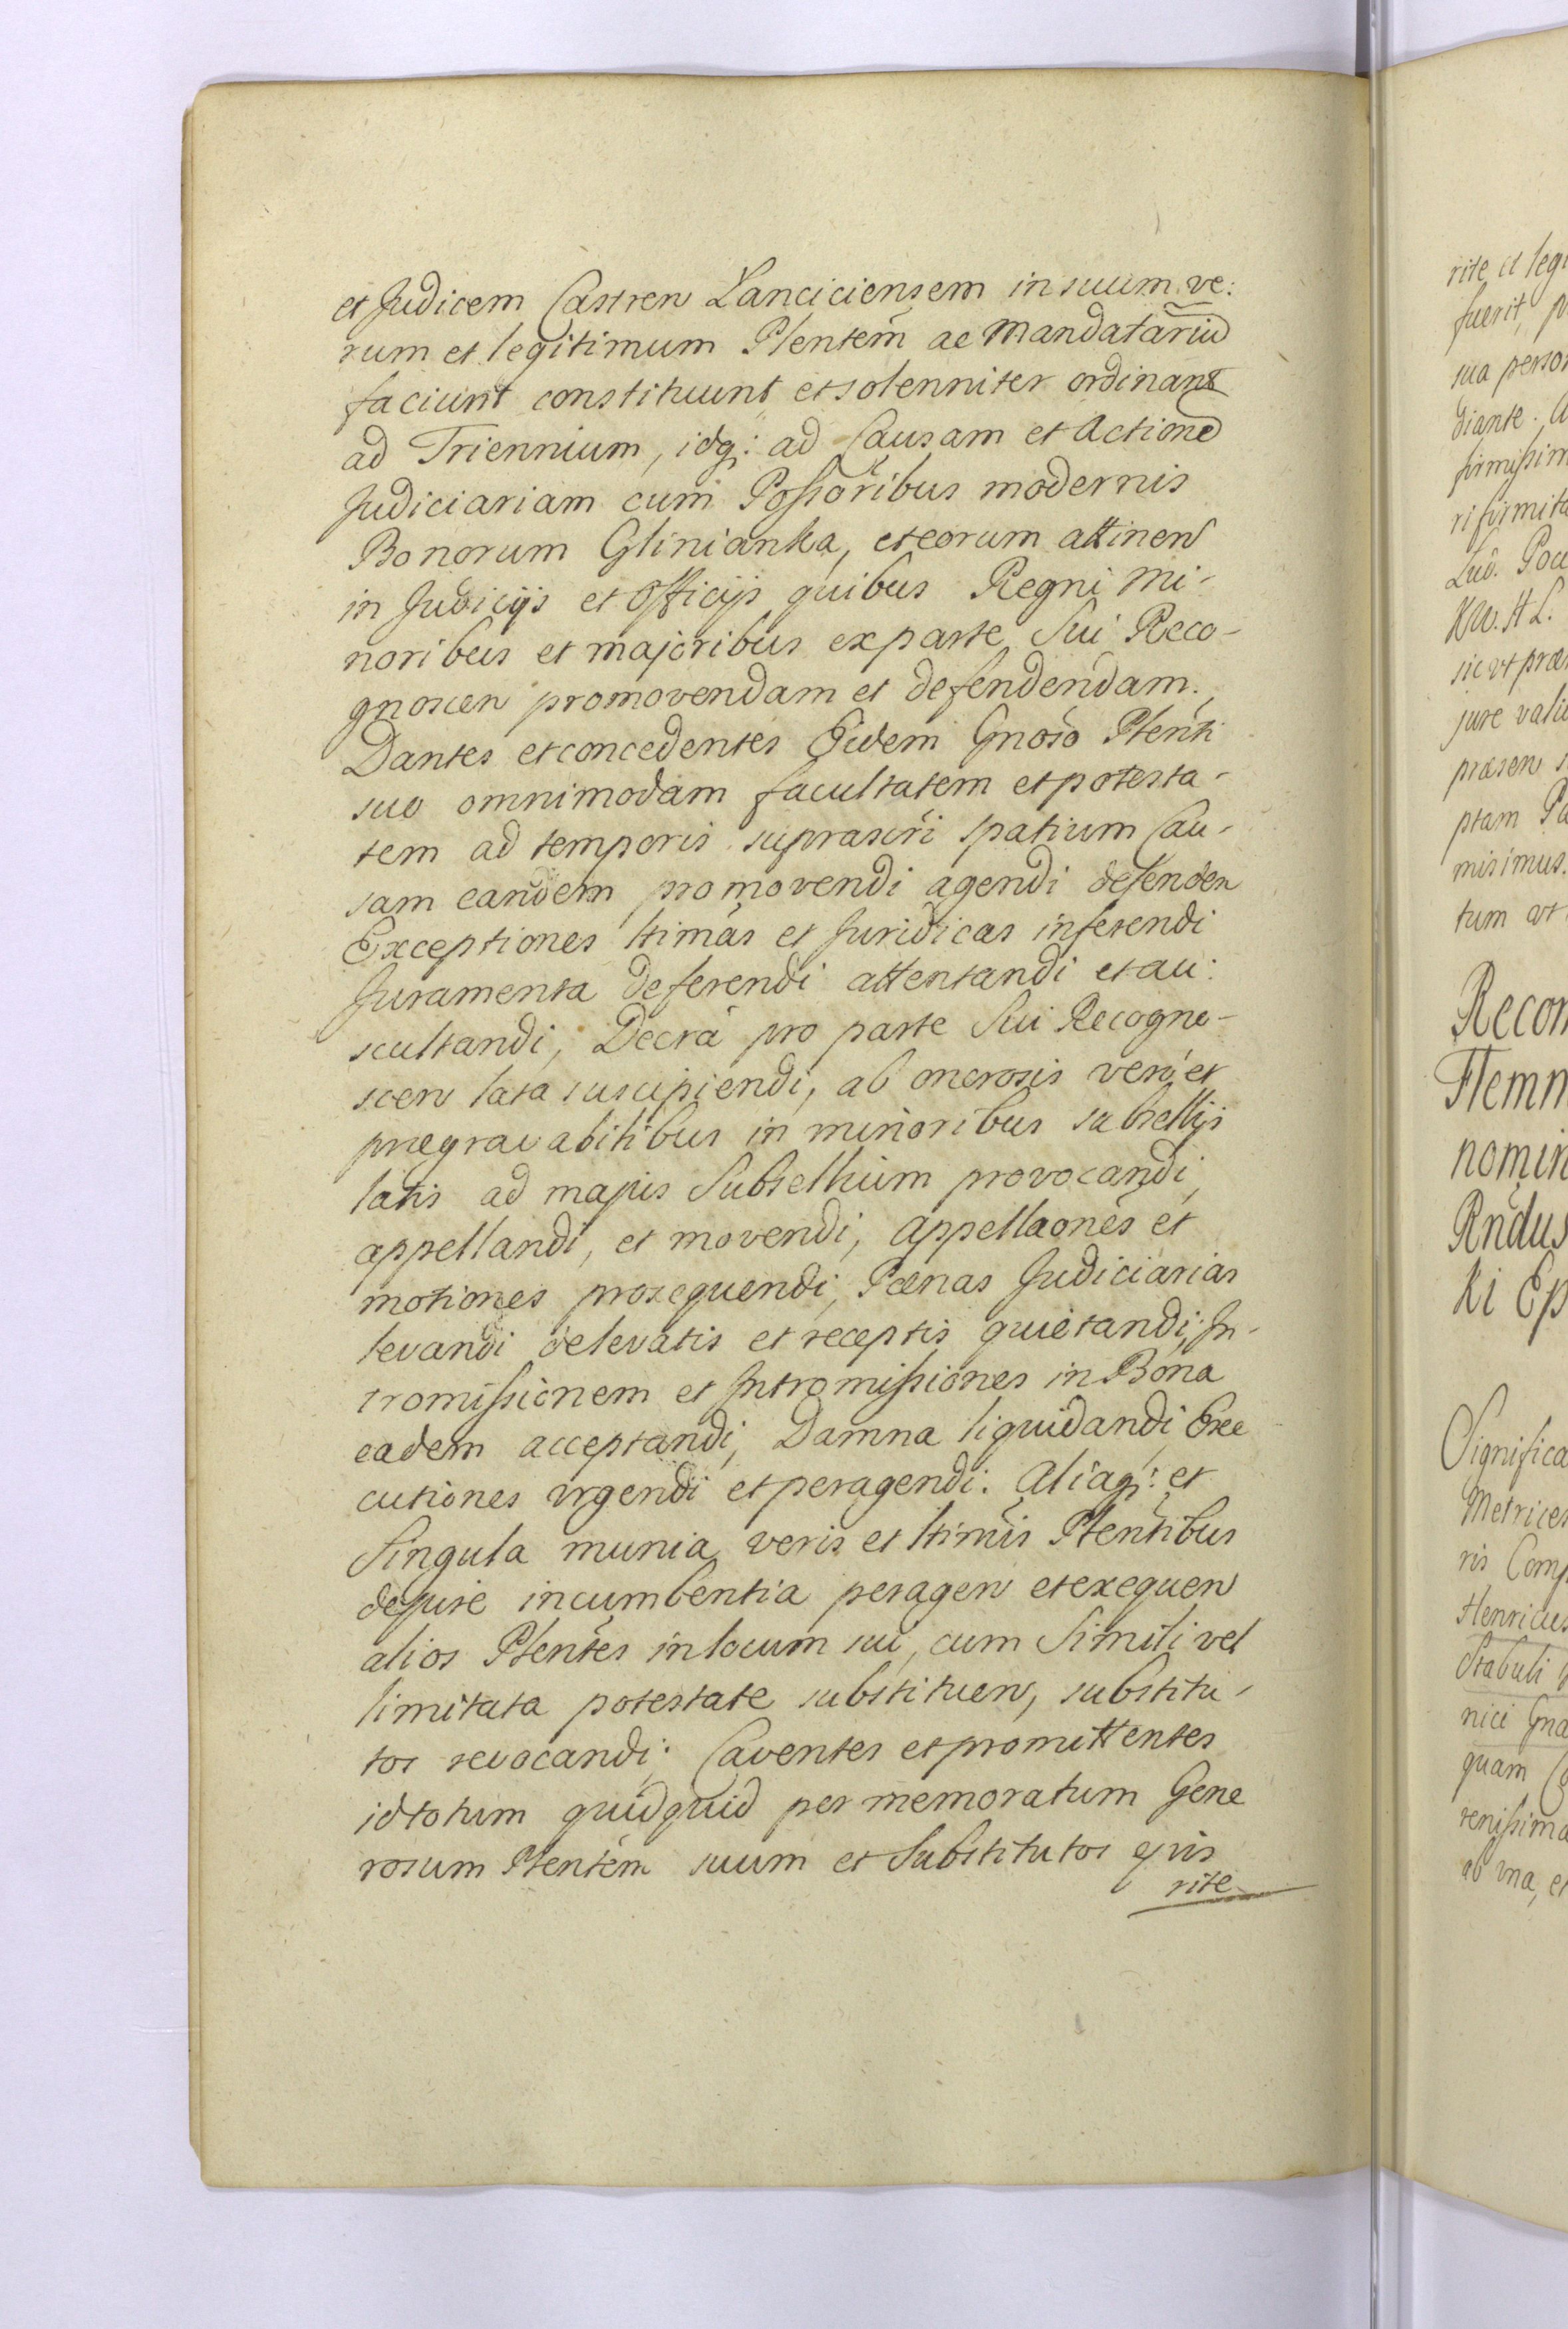 et Judicem Castren Lanciciensem in suum ve:
rum et legitimum Plentem̃ ac Mandatariũ
faciunt constituunt et solenniter ordinant
ad Triennium, idq: ad Causam et Actionẽ
Judiciariam cum Possoribus modernis
Bonorum Glinianka, et eorum attinen
in Judicijs et Officijs quibus Regni Mi-
noribus et majoribus ex parte Sui Reco-
gnoscen promovendam et defendendam.
Dantes et concedentes Eidem Gnoso Plenti
suo omnimodam facultatem et potesta-
tem ad temporis suprascri spatium Cau-
sam eandem promovendi agendi defenden
Exceptiones ltimas et Juridicas inferendi
Juramenta deferendi attentandi et au:
scultandi, Decra pro parte Sui Recogno-
scen lata suscipiendi, ab onerosis vero et
praegravabilibus in minoribus subsellijs
latis ad majus Subsellium provocandi,
appellandi, et movendi, Appellaones et
motiones prosequendi, Paenas Judiciarias
levandi de levatis et receptis quietandi, In-
tromissionem et Intromissiones in Bona
eadem acceptandi, Damna liquidandi Exe
cutiones urgendi et peragendi. Aliaq: et
Singula munia veris et ltimis Plentibus
de jure incumbentia peragen et exequen
alios Plentes in locum sui, cum Simili vel
limitata potestate substituen, substitu-
tos revocandi; Caventes et promittentes
id totum quidquid per memoratum Gene
rosum Plentem suum et Substitutos ejus
rite
rite et legi
fuerit, p
sua person
diante. A
firmissim
ri firmita
Lud. Poci
KW. H L.
sic ut prae
jure vali
praesen s
ptam Pa
misimus.
tum ut
Recon
Flemm
nomin
Rndus
ki Ep
Significa
Metrices
ris Comp
Henricus
Stabuli
nici Gna
quam Co
renissima
ab una, et